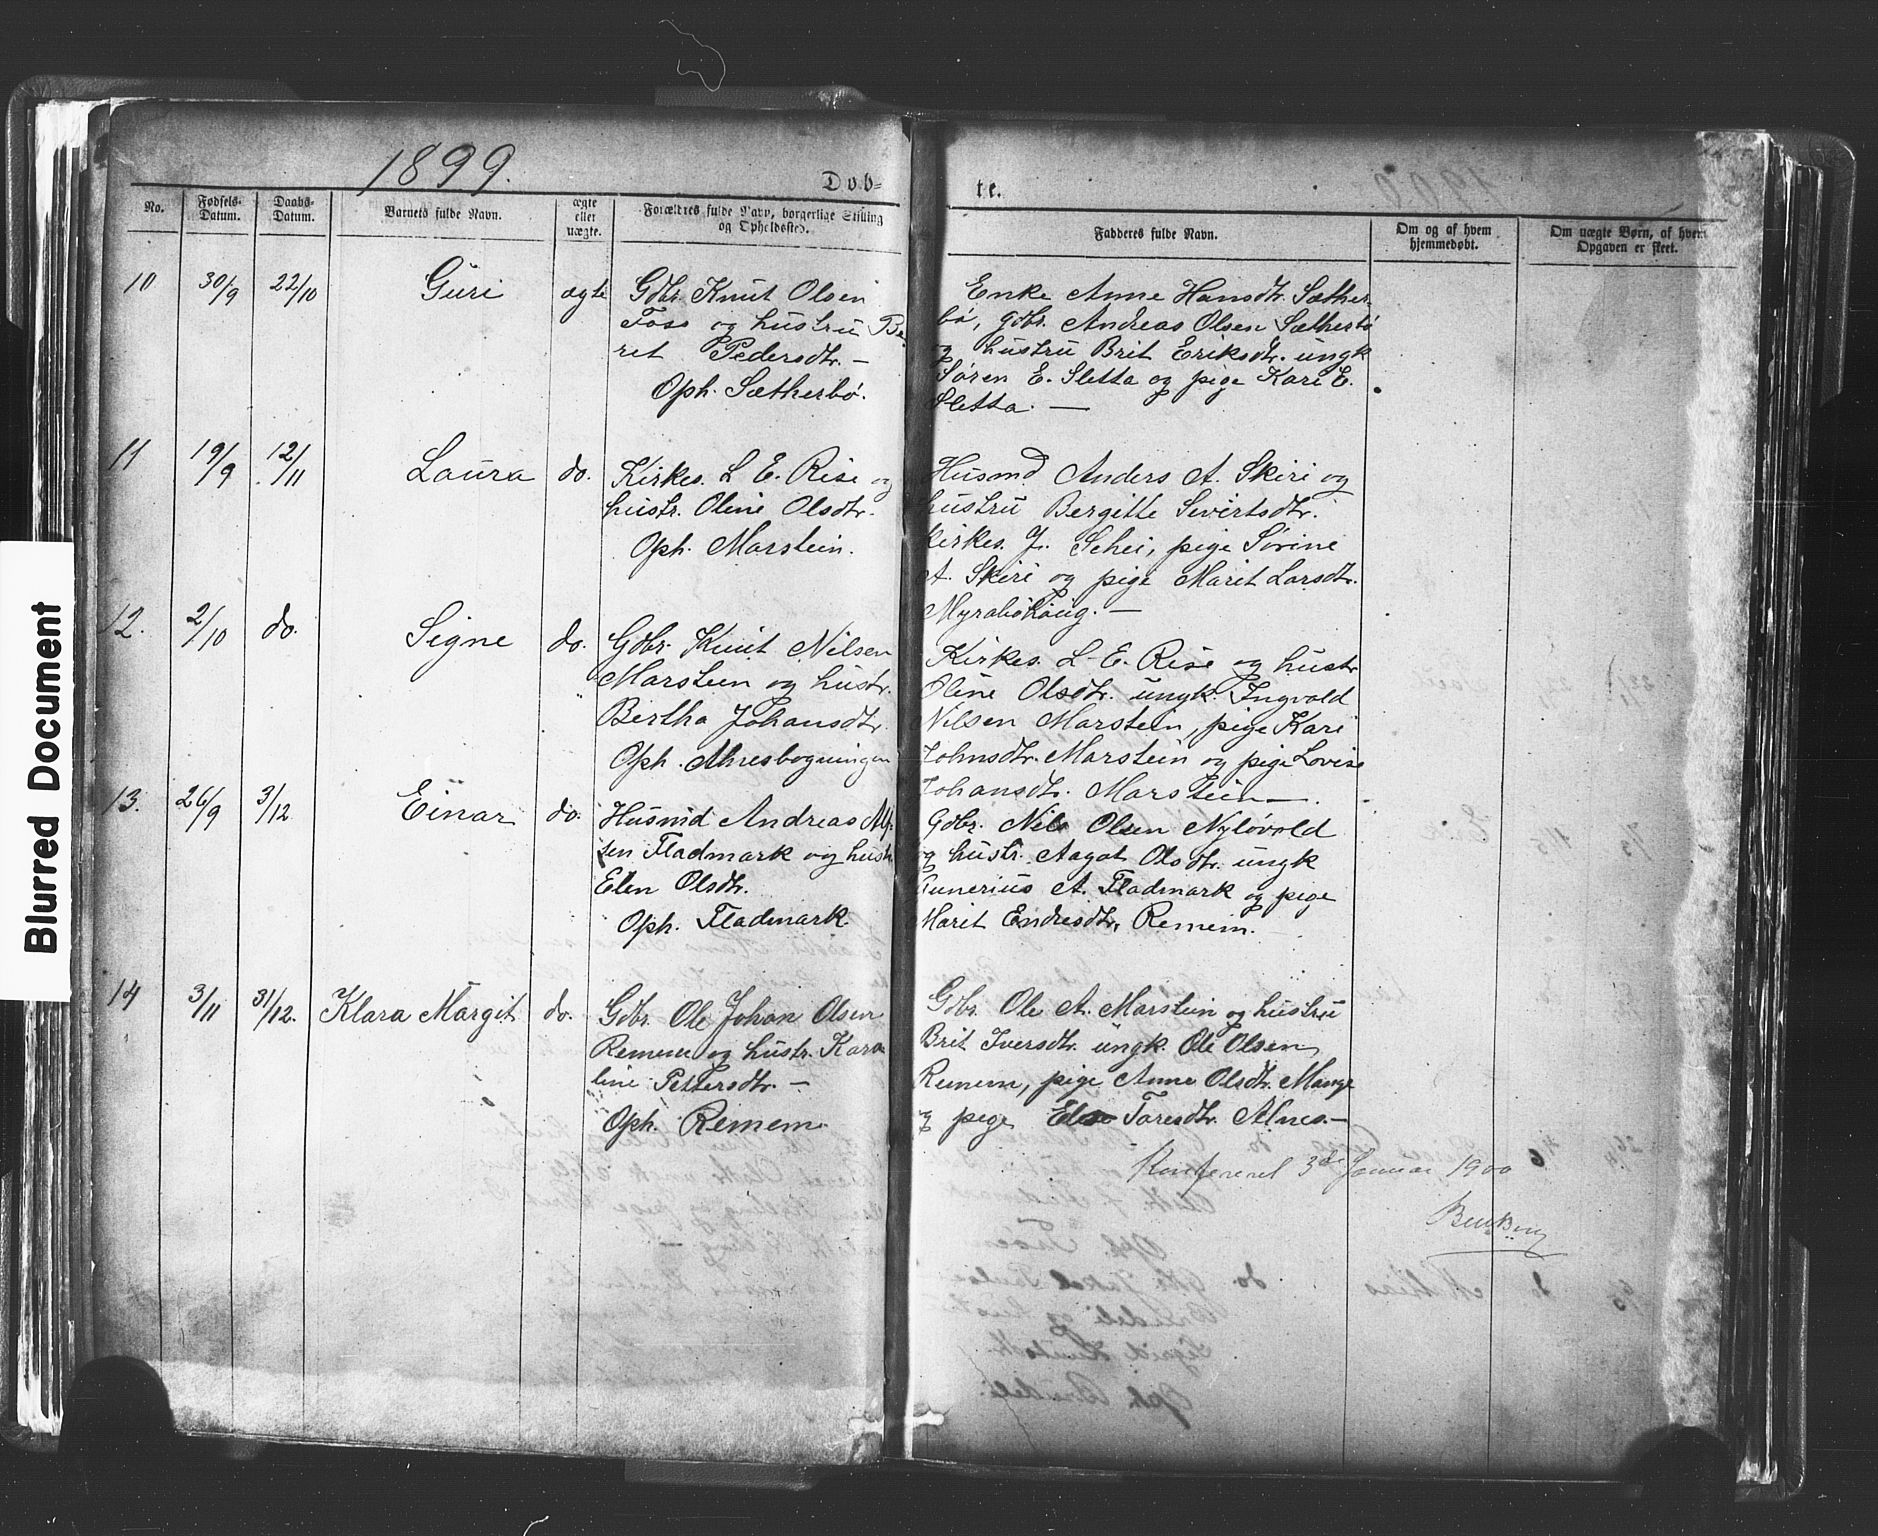 Blurred Document
1899.
Dob=
te.
No.
Fødsels-
Datum.
Daabs-
Datum.
Barnets fulde Navn.
ægte
eller
uægte.
Forældres fulde Navn, borgerlige Stilling
og Opholdssted.
Fadderes fulde Navn.
Om og af hvem
hjemmedøbt.
Om uægte Børn, af hvem
Opgaven er skeet.
10 30/9 22/10 Guri ægte
Gdbr. Knut Olsen
Foss og hustru Be-
ret Pedersdtr. —
Oph. Sætherbø.
Enke Anne Hansdtr. Sæther-
bø, gdbr. Andreas Olsen Sætherbø
og hustru Brit Eriksdtr. ungk
Søren E. Sletta og pige Kari E.
Sletta. —
11 19/9 12/11 Laura do.
Kirkes. L. E. Rise og
hustr. Oline Olsdtr.
Oph. Marstein.
Husmd Anders A. Skiri og
hustru Bergitte Sivertsdtr.
kirkes. J. Schei, pige Sørine
A. Skiri og pige Marit Larsdtr.
Myrabøhaug. —
12. 2/10 do. Signe do.
Gdbr. Knut Nilsen
Marstein og hustr.
Bertha Johansdtr.
Oph.
Kirkes. L. E. Rise og hustr
Oline Olsdtr. ungk. Ingvold
Nilsen Marstein, pige Kari
Johnsdtr. Marstein og pige Lovise
Johansdtr. Marstein —.
13. 26/9 3/12 Einar do.
Husmd Andreas Alf-
sen Fladmark og hustr
Elen Olsdtr.
Oph. Fladmark.
Gdbr. Nils Olsen Nyløvold
og hustr. Aagot Olsdtr. ungk
Gunerius A. Fladmark og pige
Marit Endresdtr. Remem.
14 3/11 31/12. Klara Margit do.
Gdbr. Ole Johan Olsen
Remem og hustr. Karo
line Pettersdtr. —
Oph. Remem.
Gdbr. Ole A. Marstein og hustru
Brit Iversdtr. ungk. Ole Olsen
Remem, pige Anne Olsdtr. Mange
og pige Else Toresdtr. Alnes. —
Konfereret 3de Januar 1900